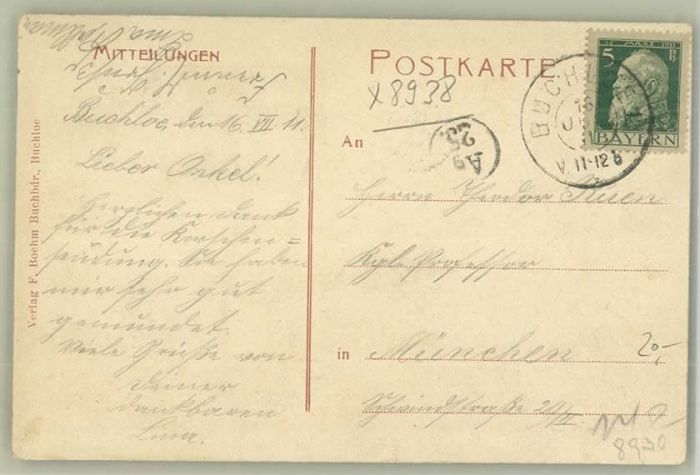 MITTEILUNGEN
Buchloe, den 16. VII. 11.
Lieber Onkel!
Herzlichen Dank
für die Kirschen=
sendung. Sie haben
mir sehr gut
gemundet.
Viele Grüße von
deiner
dankbaren
Lina.
Verlag F. Boehm Buchbdr., Buchloe
POSTKARTE
X8938
5
BAYERN
BUCHLOE
V. 11-12
An
Herrn Theodor
Kgl. Professor
in München
20,-
8930